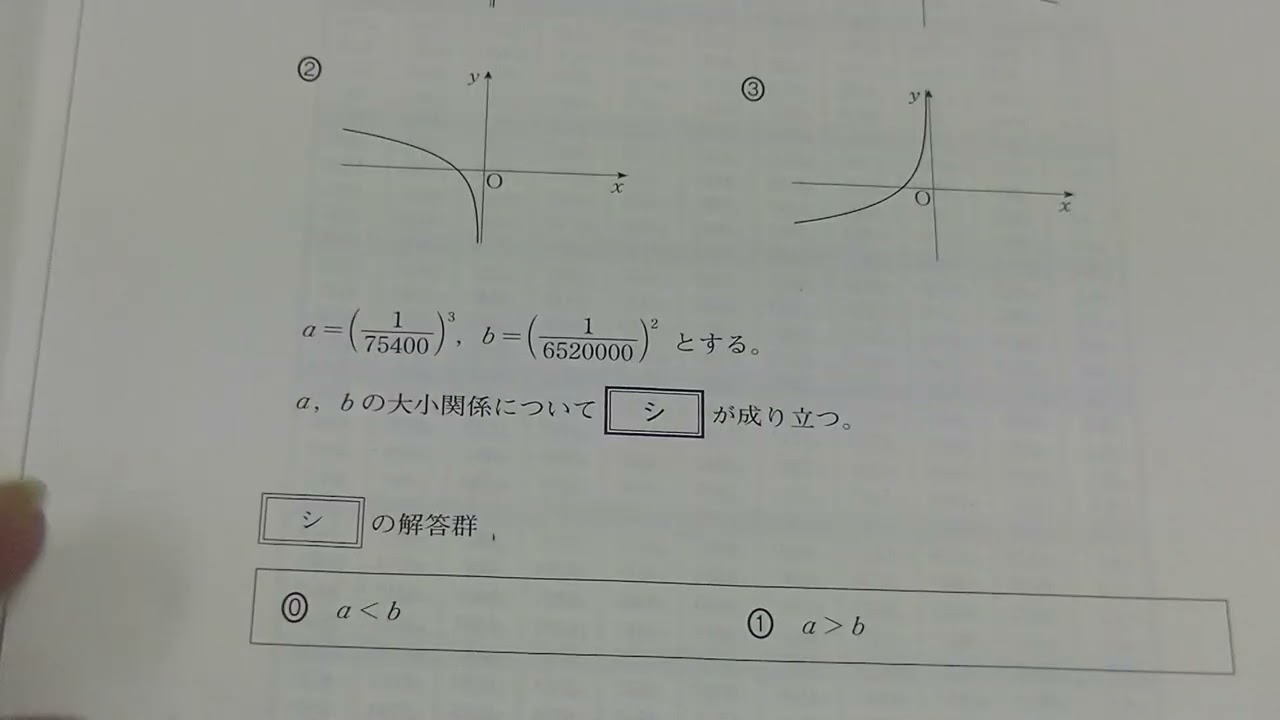 ② ③
y y
O x O x
a = (1/75400)³, b = (1/6520000)² とする。
a, b の大小関係について シ が成り立つ。
シ の解答群
⓪ a < b ① a > b